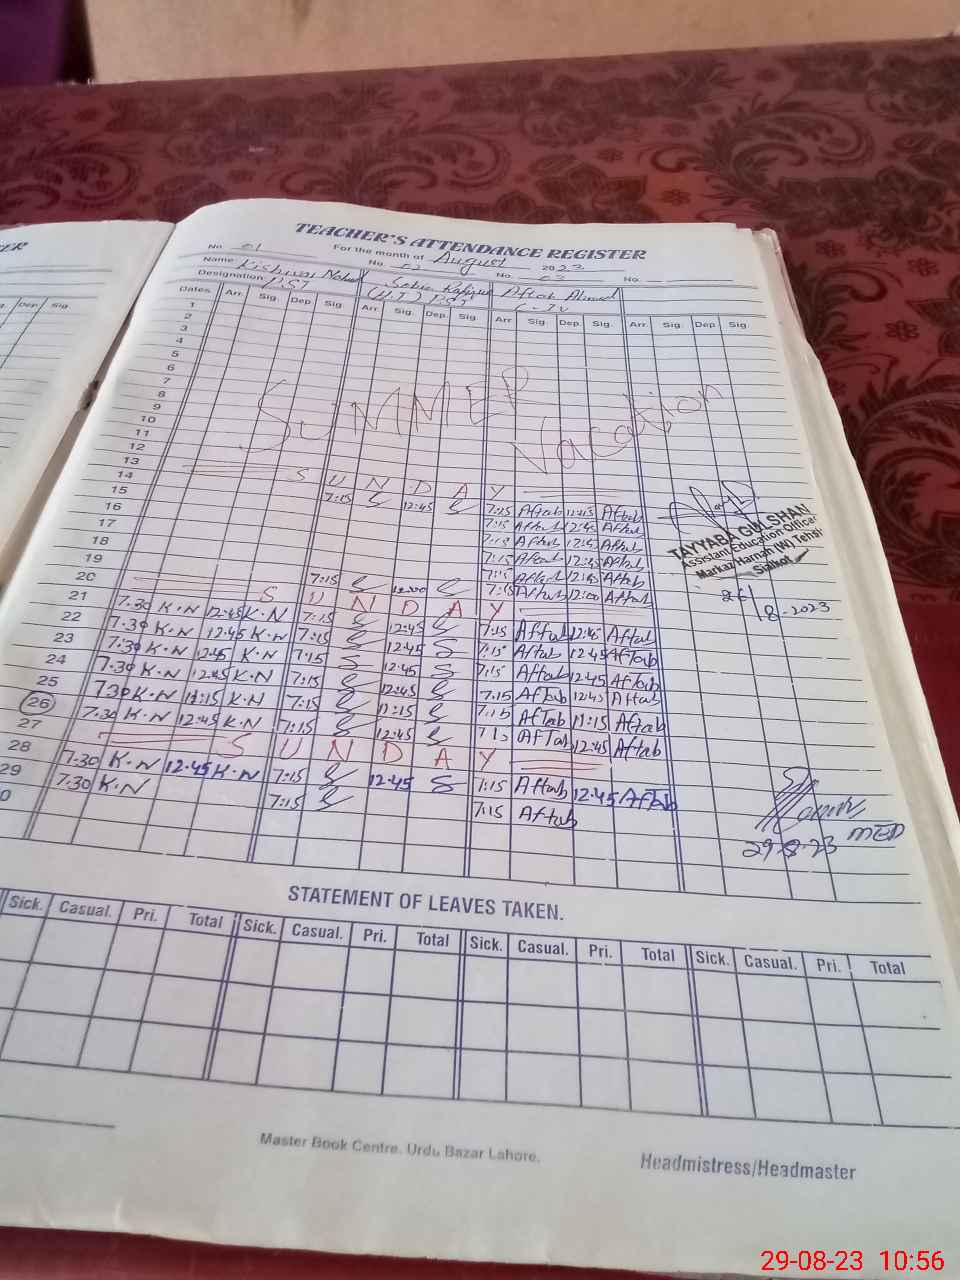 TEACHER'S ATTENDANCE REGISTER
For the month of August 2023
No. 01 No. 02 No. 03 No.
Name Kishwar Aftab Ahmed
Designation PST PST
Dates. Arr. Sig. Dep. Sig. Arr. Sig. Dep. Sig. Arr. Sig. Dep. Sig. Arr. Sig. Dep. Sig.
1
2
3
4
5
6
7
8
SUMMER
9
10
Vacation
11
12
13
SUNDAY
14
15 7:15 12:45 7:15 Aftab 12:45 Aftab
16 7:15 Aftab 12:45 Aftab
17 7:15 Aftab 12:45 Aftab
18 7:15 Aftab 12:45 Aftab
19 7:15 Aftab 12:45 Aftab
7:15 12:00 7:15 Aftab 12:00 Aftab
20 SUNDAY
21 7:30 K.N 12:45 K.N 7:15 12:45 7:15 Aftab 12:45 Aftab
22 7:30 K.N 12:45 K.N 7:15 12:45 7:15 Aftab 12:45 Aftab
23 7:30 K.N 12:45 K.N 7:15 12:45 7:15 Aftab 12:45 Aftab
24 7:30 K.N 12:45 K.N 7:15 12:45 7:15 Aftab 12:45 Aftab
25 7:30 K.N 11:15 K.N 7:15 11:15 7:15 Aftab 11:15 Aftab
26 7:30 K.N 12:45 K.N 7:15 12:45 7:15 Aftab 12:45 Aftab
27 SUNDAY
28 7:30 K.N 12:45 K.N 7:15 12:45 7:15 Aftab 12:45 Aftab
29 7:30 K.N 7:15 7:15 Aftab
TAYYABA GULSHAN
Assistant Education Officer
Markaz Harnah (W) Tehsil
Sialkot
26/8-2023
MED
29-8-23
STATEMENT OF LEAVES TAKEN.
Sick. Casual. Pri. Total Sick. Casual. Pri. Total Sick. Casual. Pri. Total Sick. Casual. Pri. Total
Master Book Centre, Urdu Bazar Lahore.
Headmistress/Headmaster
29-08-23 10:56